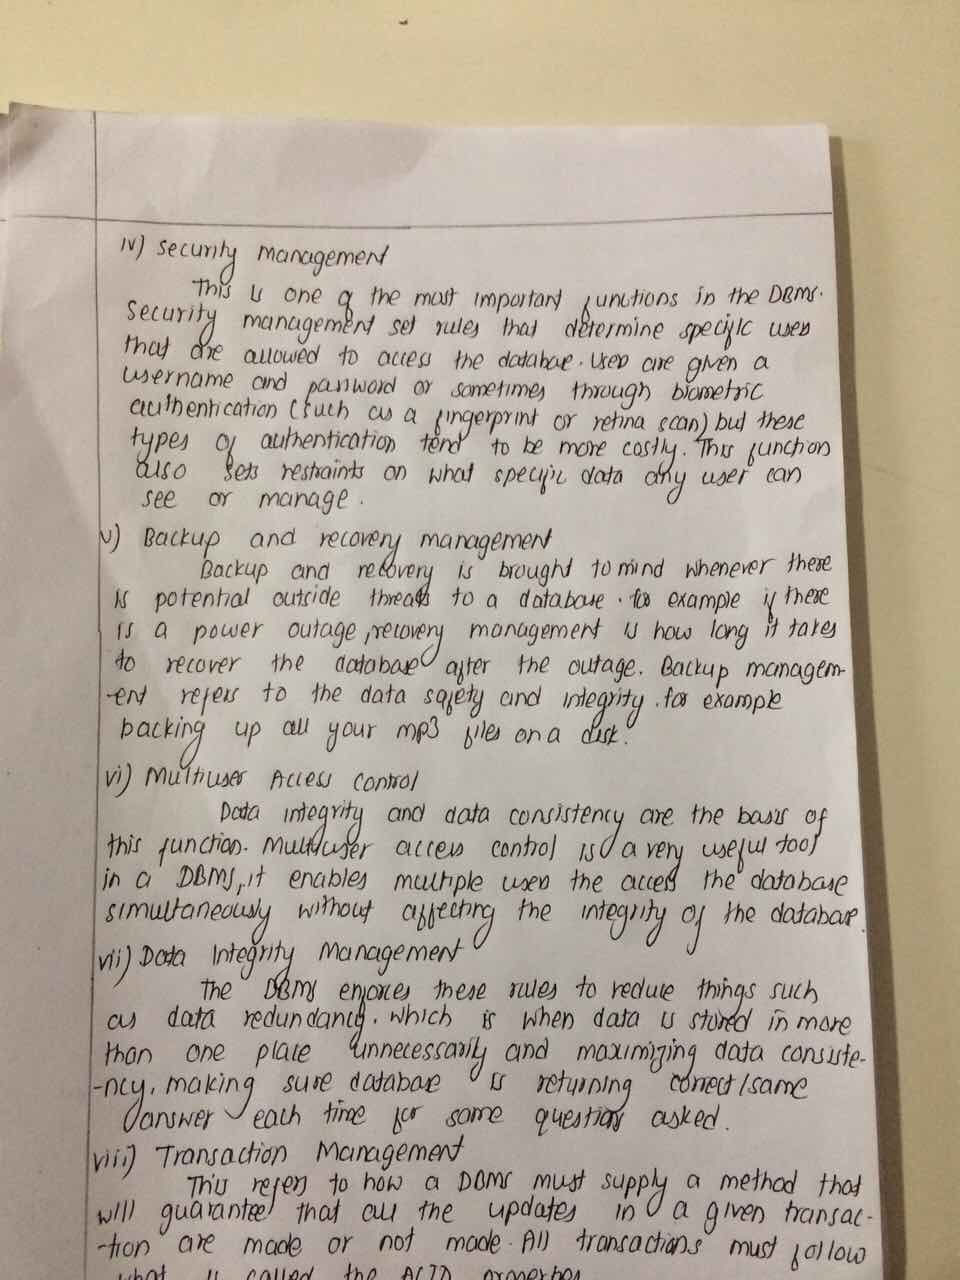 iv) Security Management
This is one of the most important functions in the DBMS.
Security management set rules that determine specific users
that are allowed to access the database. Users are given a
username and password or sometimes through biometric
authentication (such as a fingerprint or retina scan) but these
types of authentication tend to be more costly. This function
also sets restraints on what specific data any user can
see or manage.
v) Backup and recovery management
Backup and recovery is brought to mind whenever there
is potential outside threats to a database. for example if there
is a power outage, recovery management is how long it takes
to recover the database after the outage. Backup managem-
-ent refers to the data safety and integrity. for example
backing up all your mp3 files on a disk.
vi) Multiuser Access Control
Data integrity and data consistency are the basis of
this function. Multiuser access control is a very useful tool
in a DBMS, it enables multiple users the access the database
simultaneously without affecting the integrity of the database.
vii) Data Integrity Management
The DBMS enforces these rules to reduce things such
as data redundancy. which is when data is stored in more
than one place unnecessarily and maximizing data consiste-
-ncy, making sure database is returning correct/same
answer each time for same question asked.
viii) Transaction Management
This refers to how a DBMS must supply a method that
will guarantee that all the updates in a given transac-
-tion are made or not made. All transactions must follow
what is called the ACID properties.